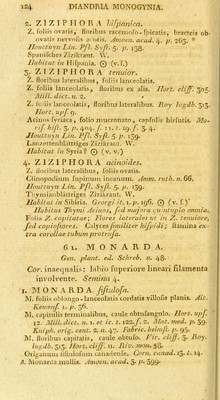 124 DIANDRIA MONOGYNIA.
2. ZIZIPHORA hispanica.
Z. foliis ovatis, floribus racemoso-spicatis, bracteis ob
ovatis nervosis acutis. Amoen. acad. 4. p. 263. *
Houttuyn Lin. Pfl. Syst. 5. p. 138.
Spanisches Zizikraut. W.
Habitat in Hispania. ☉ (v. s.)
3. ZIZIPHORA tenuior.
Z. floribus lateralibus, foliis lanceolatis.
Z. foliis lanceolatis, floribus ex alis. Hort. cliff. 305.
Mill. dict. n. 2.
Z. foliis lanceolatis, floribus lateralibus. Roy lugdb. 313.
Hort. ups. 9.
Acinos syriaca, folio mucronato, capsulis hirsutis. Mo-
ris. hist. 3. p. 404. s. 11. t. 19. f. 3. 4.
Houttuyn Lin. Pfl. Syst. 5. p. 139.
Lanzettenblättriges Zizikraut. W.
Habitat in Syria? ☉ (v. v.)
4. ZIZIPHORA acinoides.
Z. floribus lateralibus, foliis ovatis.
Clinopodium supinum incanum. Amm. ruth. n. 66.
Houttuyn Lin. Pfl. Syst. 5. p. 139.
Thymianblättriges Zizikraut. W.
Habitat in Sibiria. Georgi it. 1. p. 196. ☉ (v. s.)
Habitus Thymi Acinos, sed majora quatuplo omnia.
Folia Z. capitatae; Flores laterales ut in Z. tenuiore,
sed copiosiores. Calyces similiter hispidi; stamina ex-
tra corollae tubum protrusa.
61. MONARDA.
Gen. plant. ed. Schreb. n. 48.
Cor. inaequalis: labio superiore lineari filamenta
involvente. Semina 4.
1. MONARDA fistulosa.
M. foliis oblongo-lanceolatis cordatis villosis planis. Ait.
Kewens. 1. p. 36.
M. capitulis terminalibus, caule obtusangulo. Hort. ups.
12. Mill. dict. n. 1. et ic. t. 122. f. 2. Mat. med. p. 39.
Kniph. orig. cent. 2. n. 47. Fabric. helmst. p. 95.
M. floribus capitatis, caule obtuso. Vir. cliff. 3. Roy.
lugdb. 313. Hort. cliff. 11. Riv. mon. 58.
Origanum fistulosum canadense. Corn. canad. 13. t. 14.
Monarda mollis. Amoen. acad. 3. p. 399.